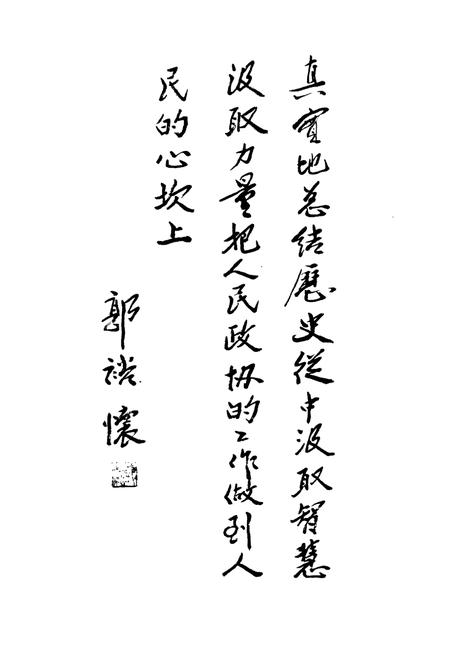 真實地总结歷史從中汲取智慧
汲取力量把人民政协的工作做到人
民的心坎上
郭裕懷